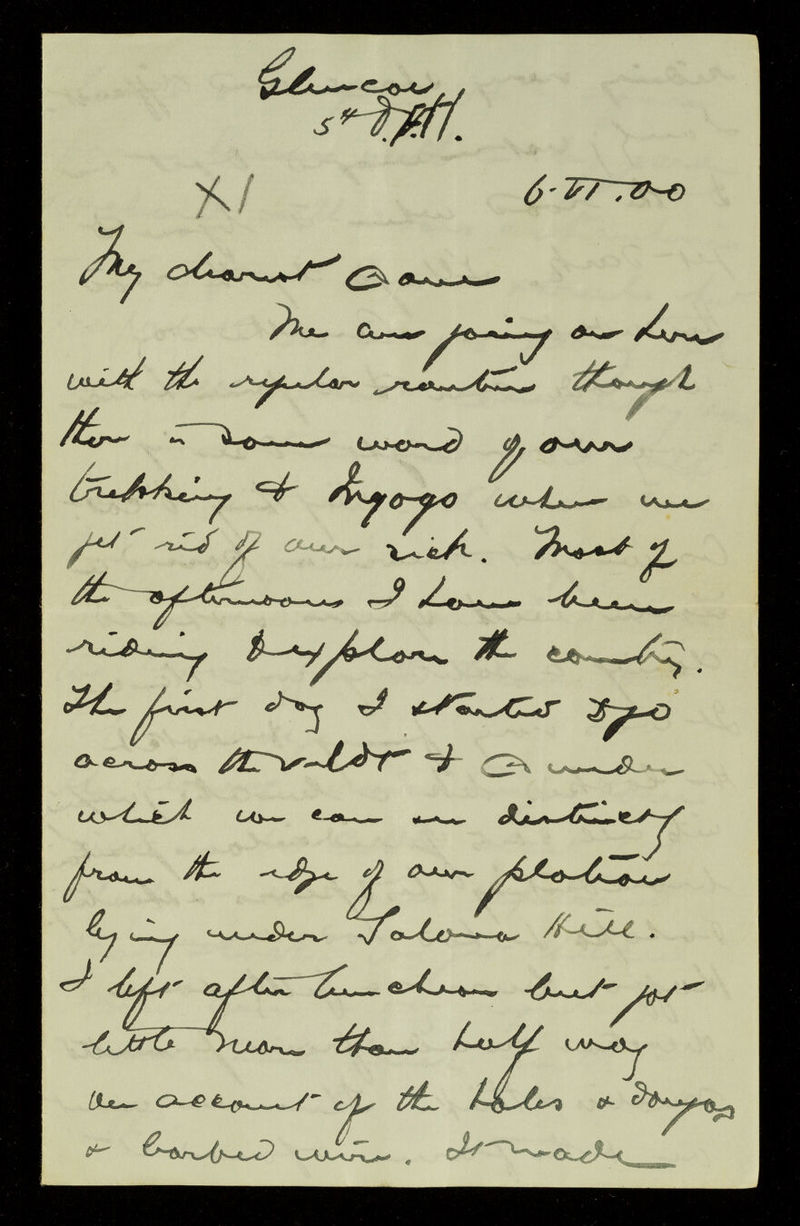 Glencoe
5th D.F.H.
XI
6.VI.00
My dearest
We are going on here
with the regular routine though
there is some word of our
trekking to Ingogo when we
get rid of our sick. Most of
the afternoons I have been
riding to explore the country.
The first day I started to go
across the veldt to
which we can see distinctly
from the edge of our plateau
lying under Talana Hill.
I left after luncheon but got
little more than half way
on account of the holes & dongas
& barbed wire. It made